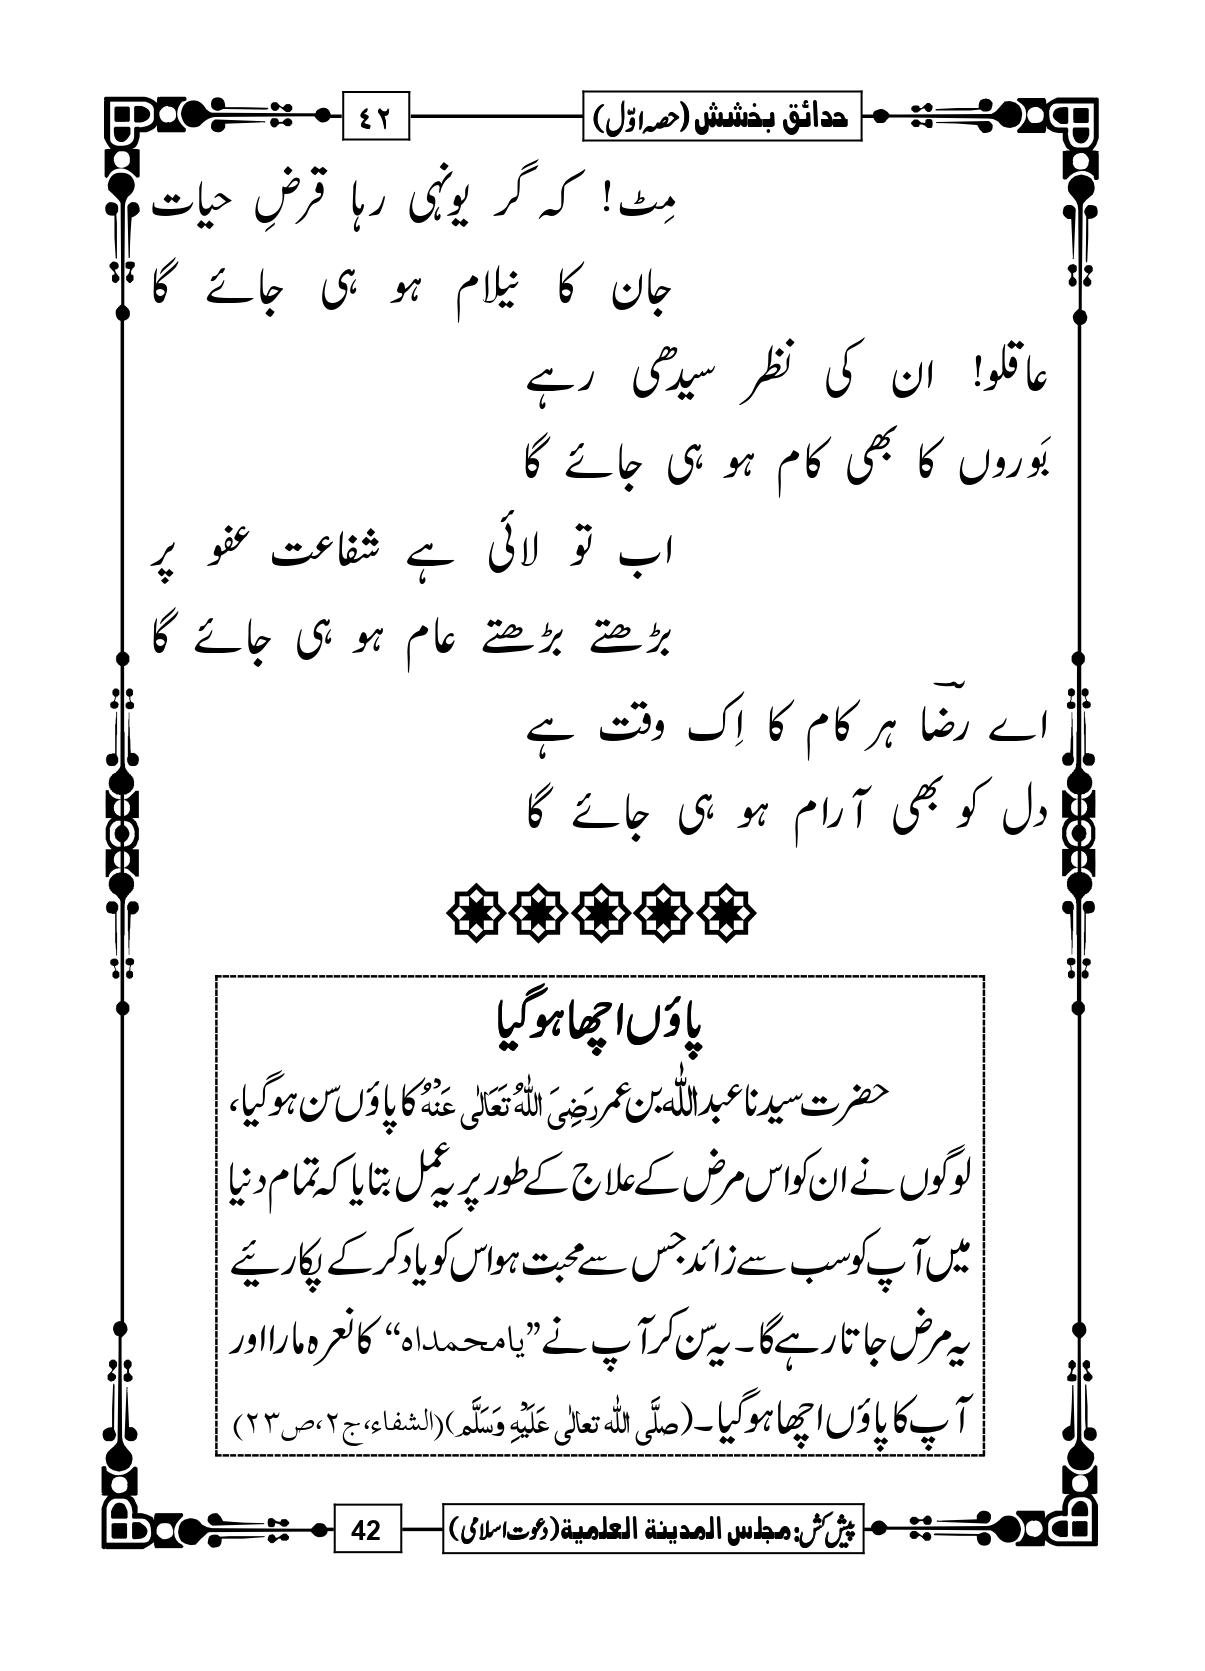 حدائق بخشش (حصہ اوّل)
۴۲
مِٹ! کہ گر یونہی رہا قرضِ حیات
جان کا نیلام ہو ہی جائے گا
عاقلو! ان کی نظر سیدھی رہے
بَوروں کا بھی کام ہو ہی جائے گا
اب تو لائی ہے شفاعت عفو پر
بڑھتے بڑھتے عام ہو ہی جائے گا
اے رضؔا ہر کام کا اِک وقت ہے
دل کو بھی آرام ہو ہی جائے گا
پاؤں اچھا ہوگیا
حضرت سیدنا عبداللہ بن عمر رَضِیَ اللّٰہُ تَعَالٰی عَنْہُ کا پاؤں سن ہوگیا،
لوگوں نے ان کو اس مرض کے علاج کے طور پر یہ عمل بتایا کہ تمام دنیا
میں آپ کو سب سے زائد جس سے محبت ہو اس کو یاد کر کے پکاریئے
یہ مرض جاتا رہے گا۔ یہ سن کر آپ نے ”یامحمداہ“ کا نعرہ مارا اور
آپ کا پاؤں اچھا ہوگیا۔ (صلَّی اللّٰہ تعالٰی عَلَیْہِ وَسَلَّم)(الشفاء،ج۲،ص۲۳)
پیش کش: مجلس المدینة العلمیة (دعوت اسلامی)
42